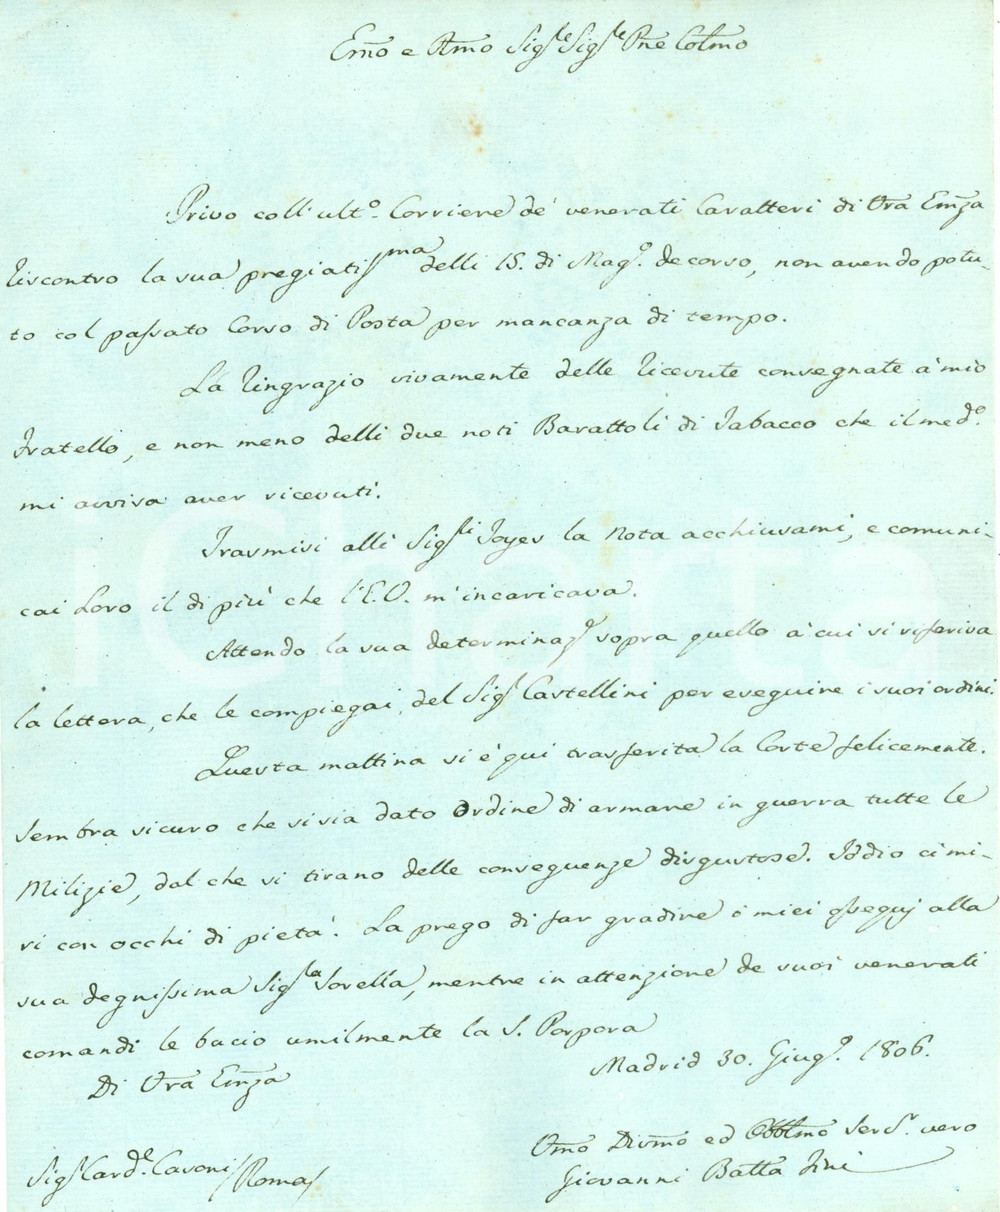 Emo e Rmo Sigle Sigle Pne Colmo
Privo coll'ulto. Corriere de' venerati Caratteri di Vra Emza
riscontro la sua pregiatissma delli 15. di Mago. decorso, non avendo potu-
to col passato Corso di Posta per mancanza di tempo.
La ringrazio vivamente delle ricevute consegnate à mio
Fratello, e non meno delli due noti Barattoli di Tabacco che il medo.
mi avvisa aver ricevuti.
Trasmisi alli Sigli Joyes la Nota acchiusami, e comuni-
cai Loro il di più che l'E.V. m'incaricava.
Attendo la sua determinaze sopra quello à cui si riferiva
la lettera, che le compiegai, del Sigr Castellini per eseguire i suoi ordini.
Questa mattina si è qui trasferita la Corte felicemente.
Sembra sicuro che si sia dato Ordine di armare in guerra tutte le
Milizie, dal che si tirano delle conseguenze disgustose. Iddio ci mi-
ri con occhi di pietà. La prego di far gradire i miei ossequj alla
sua degnissima Sigla Sorella, mentre in attenzione de suoi venerati
comandi le bacio umilmente la S. Porpora
Di Vra Emza
Madrid 30. Giugo. 1806.
Umo Divmo ed Obblmo Servr. vero
Giovanni Batta
Sigr Carde. Cavoni / Roma /
iCharta